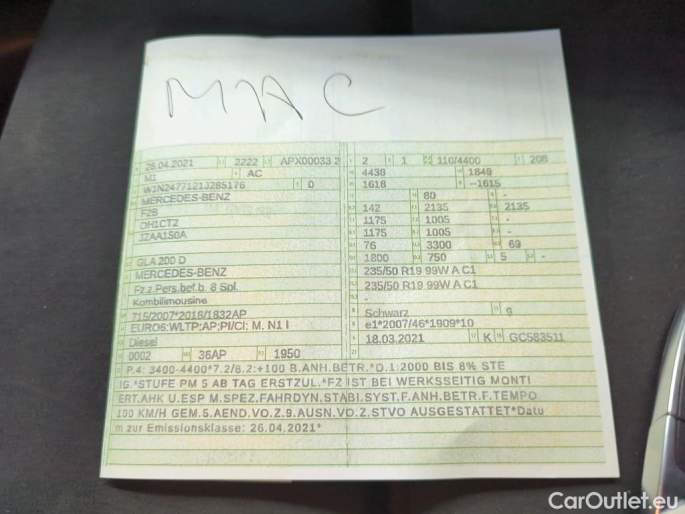 MAC
26.04.2021 2222 APX00033 2
M1 AC
W1N2477121J285176 0
MERCEDES-BENZ
F2B
OH1CT2
JZAA150A
GLA 200 D
MERCEDES-BENZ
Fz.z.Pers.bef.b. 8 Spl.
Kombilimousine
715/2007*2018/1832AP
EURO6;WLTP;AP;PI/CI; M, N1 I
Diesel
0002 36AP 1950
2 1 110/4400 208
4438 1849
1618 --1615
80 -
142 2135 2135
1175 1005 -
1175 1005 -
76 3300 69
1800 750 5 -
235/50 R19 99W A C1
235/50 R19 99W A C1
-
Schwarz 9
e1*2007/46*1909*10
18.03.2021 K GC583511
P.4: 3400-4400*7.2/8.2:+100 B.ANH.BETR.*O.1:2000 BIS 8% STE
IG.*STUFE PM 5 AB TAG ERSTZUL.*FZ IST BEI WERKSSEITIG MONTI
ERT.AHK U.ESP M.SPEZ.FAHRDYN.STABI.SYST.F.ANH.BETR.F.TEMPO
100 KM/H GEM.5.AEND.VO.Z.9.AUSN.VO.Z.STVO AUSGESTATTET*Datu
m zur Emissionsklasse: 26.04.2021*
CarOutlet.eu